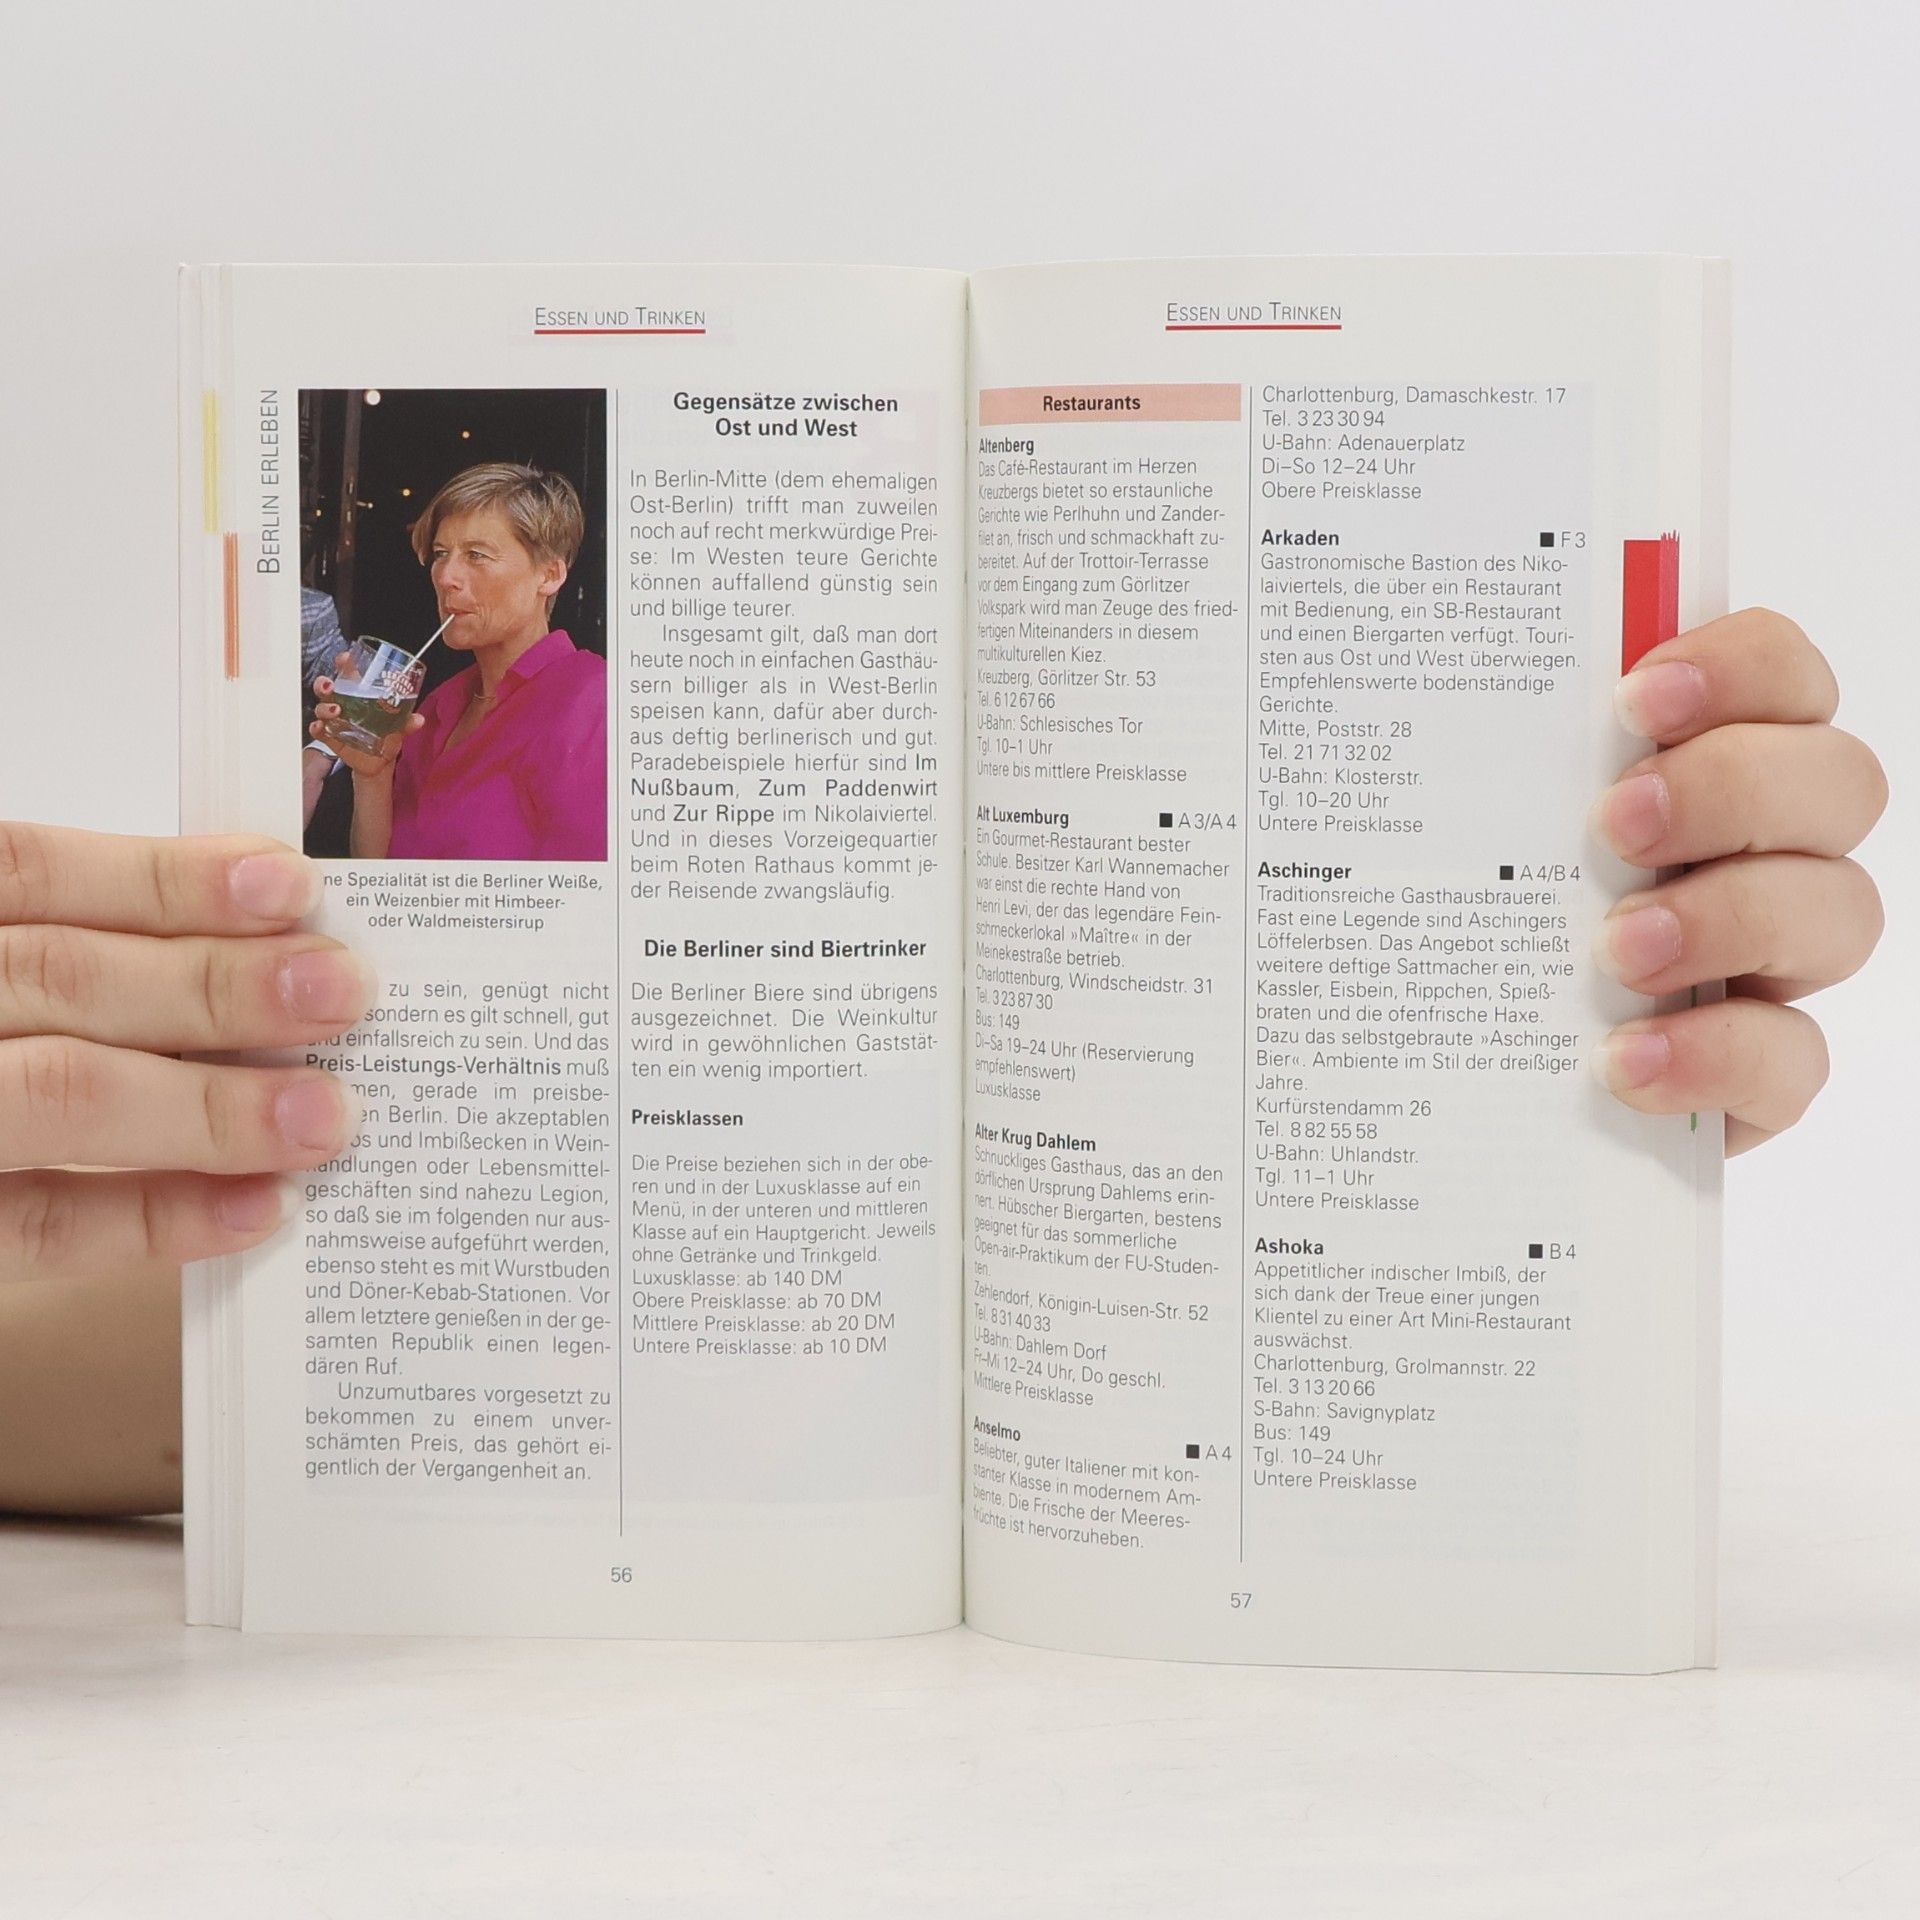 ESSEN UND TRINKEN
BERLIN ERLEBEN
ne Spezialität ist die Berliner Weiße,
ein Weizenbier mit Himbeer-
oder Waldmeistersirup
zu sein, genügt nicht
sondern es gilt schnell, gut
und einfallsreich zu sein. Und das
Preis-Leistungs-Verhältnis muß
men, gerade im preisbe-
en Berlin. Die akzeptablen
os und Imbißecken in Wein-
handlungen oder Lebensmittel-
geschäften sind nahezu Legion,
so daß sie im folgenden nur aus-
nahmsweise aufgeführt werden,
ebenso steht es mit Wurstbuden
und Döner-Kebab-Stationen. Vor
allem letztere genießen in der ge-
samten Republik einen legen-
dären Ruf.
Unzumutbares vorgesetzt zu
bekommen zu einem unver-
schämten Preis, das gehört ei-
gentlich der Vergangenheit an.
Gegensätze zwischen
Ost und West
In Berlin-Mitte (dem ehemaligen
Ost-Berlin) trifft man zuweilen
noch auf recht merkwürdige Prei-
se: Im Westen teure Gerichte
können auffallend günstig sein
und billige teurer.
Insgesamt gilt, daß man dort
heute noch in einfachen Gasthäu-
sern billiger als in West-Berlin
speisen kann, dafür aber durch-
aus deftig berlinerisch und gut.
Paradebeispiele hierfür sind Im
Nußbaum, Zum Paddenwirt
und Zur Rippe im Nikolaiviertel.
Und in dieses Vorzeigequartier
beim Roten Rathaus kommt je-
der Reisende zwangsläufig.
Die Berliner sind Biertrinker
Die Berliner Biere sind übrigens
ausgezeichnet. Die Weinkultur
wird in gewöhnlichen Gaststät-
ten ein wenig importiert.
Preisklassen
Die Preise beziehen sich in der obe-
ren und in der Luxusklasse auf ein
Menü, in der unteren und mittleren
Klasse auf ein Hauptgericht. Jeweils
ohne Getränke und Trinkgeld.
Luxusklasse: ab 140 DM
Obere Preisklasse: ab 70 DM
Mittlere Preisklasse: ab 20 DM
Untere Preisklasse: ab 10 DM
56
ESSEN UND TRINKEN
Restaurants
Altenberg
Das Café-Restaurant im Herzen
Kreuzbergs bietet so erstaunliche
Gerichte wie Perlhuhn und Zander-
filet an, frisch und schmackhaft zu-
bereitet. Auf der Trottoir-Terrasse
vor dem Eingang zum Görlitzer
Volkspark wird man Zeuge des fried-
fertigen Miteinanders in diesem
multikulturellen Kiez.
Kreuzberg, Görlitzer Str. 53
Tel. 6 12 67 66
U-Bahn: Schlesisches Tor
Tgl. 10–1 Uhr
Untere bis mittlere Preisklasse
Alt Luxemburg ■ A 3/A 4
Ein Gourmet-Restaurant bester
Schule. Besitzer Karl Wannemacher
war einst die rechte Hand von
Henri Levi, der das legendäre Fein-
schmeckerlokal »Maître« in der
Meinekestraße betrieb.
Charlottenburg, Windscheidstr. 31
Tel. 3 23 87 30
Bus: 149
Di–Sa 19–24 Uhr (Reservierung
empfehlenswert)
Luxusklasse
Alter Krug Dahlem
Schnuckliges Gasthaus, das an den
dörflichen Ursprung Dahlems erin-
nert. Hübscher Biergarten, bestens
geeignet für das sommerliche
Open-air-Praktikum der FU-Studen-
ten.
Zehlendorf, Königin-Luisen-Str. 52
Tel. 8 31 40 33
U-Bahn: Dahlem Dorf
Fr–Mi 12–24 Uhr, Do geschl.
Mittlere Preisklasse
Anselmo ■ A 4
Beliebter, guter Italiener mit kon-
stanter Klasse in modernem Am-
biente. Die Frische der Meeres-
früchte ist hervorzuheben.
Charlottenburg, Damaschkestr. 17
Tel. 3 23 30 94
U-Bahn: Adenauerplatz
Di–So 12–24 Uhr
Obere Preisklasse
Arkaden ■ F 3
Gastronomische Bastion des Niko-
laiviertels, die über ein Restaurant
mit Bedienung, ein SB-Restaurant
und einen Biergarten verfügt. Touri-
sten aus Ost und West überwiegen.
Empfehlenswerte bodenständige
Gerichte.
Mitte, Poststr. 28
Tel. 21 71 32 02
U-Bahn: Klosterstr.
Tgl. 10–20 Uhr
Untere Preisklasse
Aschinger ■ A 4/B 4
Traditionsreiche Gasthausbrauerei.
Fast eine Legende sind Aschingers
Löffelerbsen. Das Angebot schließt
weitere deftige Sattmacher ein, wie
Kassler, Eisbein, Rippchen, Spieß-
braten und die ofenfrische Haxe.
Dazu das selbstgebraute »Aschinger
Bier«. Ambiente im Stil der dreißiger
Jahre.
Kurfürstendamm 26
Tel. 8 82 55 58
U-Bahn: Uhlandstr.
Tgl. 11–1 Uhr
Untere Preisklasse
Ashoka ■ B 4
Appetitlicher indischer Imbiß, der
sich dank der Treue einer jungen
Klientel zu einer Art Mini-Restaurant
auswächst.
Charlottenburg, Grolmannstr. 22
Tel. 3 13 20 66
S-Bahn: Savignyplatz
Bus: 149
Tgl. 10–24 Uhr
Untere Preisklasse
57